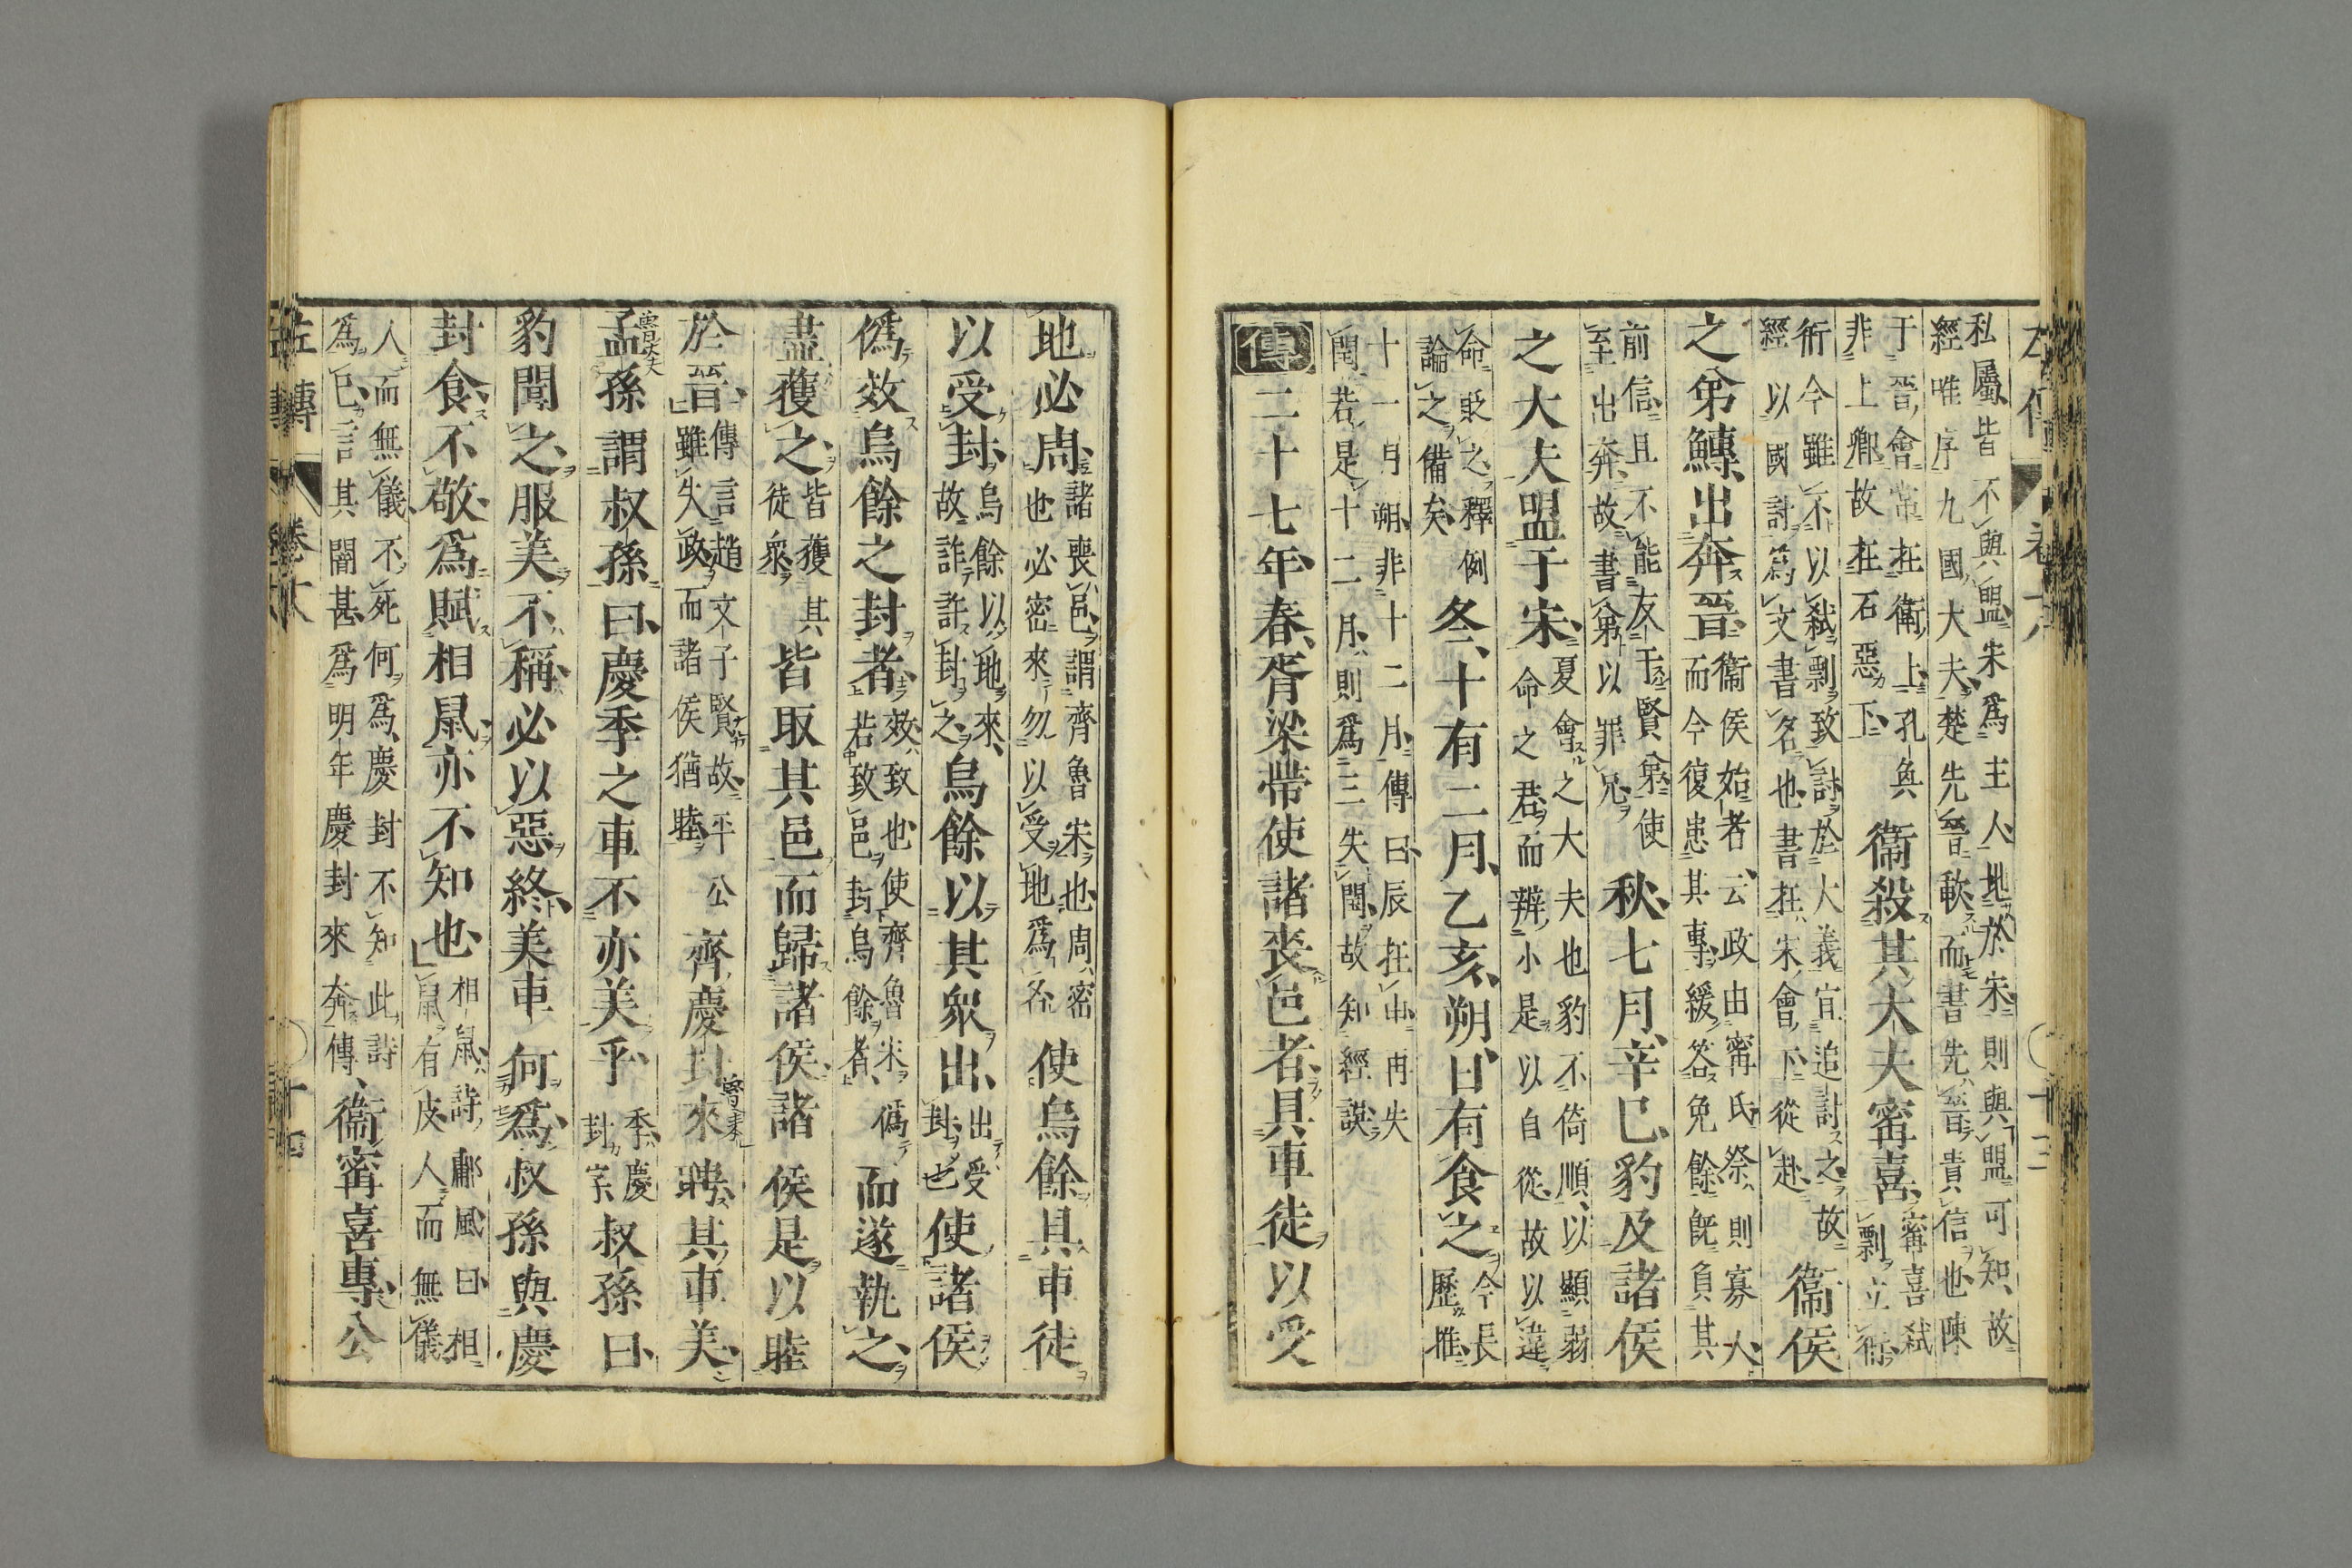 私屬皆不與盟宋爲主人地於宋則與盟可知故
經唯序九國大夫楚先晉歃而書先晉貴信也陳
于晉會常在衛上孔奐
非上卿故在石惡下
衞殺其大夫甯喜
甯喜弑
剽立衎
衎今雖不以弑剽致討於大義宜追討之故
經以國討爲文書名也書在宋會下從赴
衞侯
之弟鱄出奔晉
衞侯始者云政由甯氏祭則寡人
而今復患其專緩荅免餘旣負其
前信且不能友于賢弟使
至出奔故書弟以罪兄
秋七月辛巳豹及諸侯
之大夫盟于宋
夏會之大夫也豹不倚順以顯弱
命之君而辨小是以自從故以違
命貶之釋例
論之備矣
冬十有二月乙亥朔日有食之
今長
歷推
十一月朔非十二月傳曰辰在申再失
閏若是十二月則爲三失閏故知經誤
傳二十七年春胥梁帶使諸喪邑者具車徒以受
左傳 卷十八 十三
地必周
諸喪邑謂齊魯宋也周密
也必密來勿以受地爲名
使烏餘具車徒
以受封
烏餘以地來
故詐許封之
烏餘以其眾出
出受
封也
使諸侯
僞效烏餘之封者
效致也使齊魯宋僞
若致邑封烏餘者
而遂執之
盡獲之
皆獲其
徒眾
皆取其邑而歸諸侯諸侯是以睦
於晉
傳言趙文子賢故平公
雖失政而諸侯猶睦
齊慶封來聘其車美
孟孫謂叔孫曰慶季之車不亦美乎
季慶
封字
叔孫曰
豹聞之服美不稱必以惡終美車何爲叔孫與慶
封食不敬爲賦相鼠亦不知也
相鼠詩鄘風曰相
鼠有皮人而無儀
人而無儀不死何爲慶封不知此詩
爲已言其闇甚爲明年慶封來奔傳
衞甯喜專公
左傳 卷十八 十四